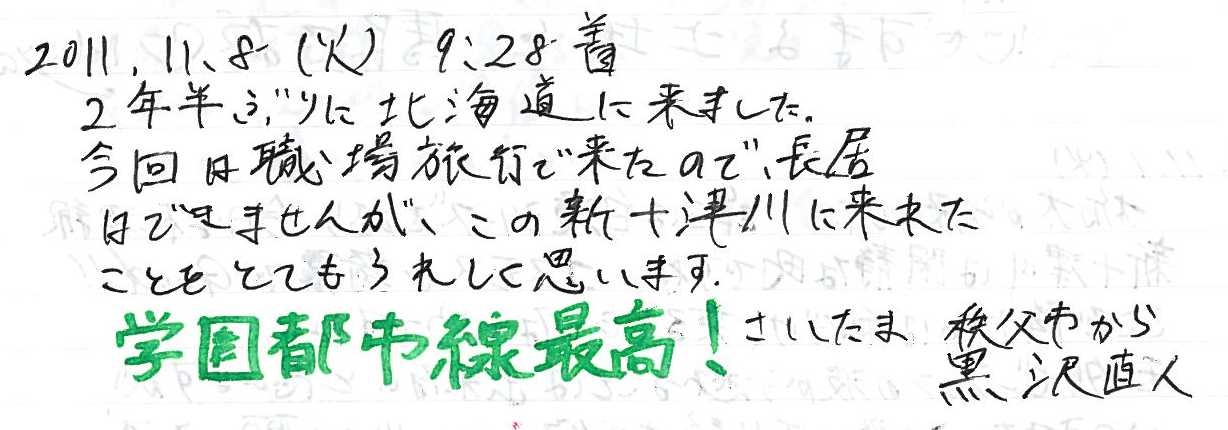 2011.11.8 (火) 9:28着
2年半ぶりに北海道に来ました。
今回は職場旅行で来たので、長居
はできませんが、この新十津川に来れた
ことをとてもうれしく思います。
学園都市線最高! さいたま 秩父市から
黒沢直人